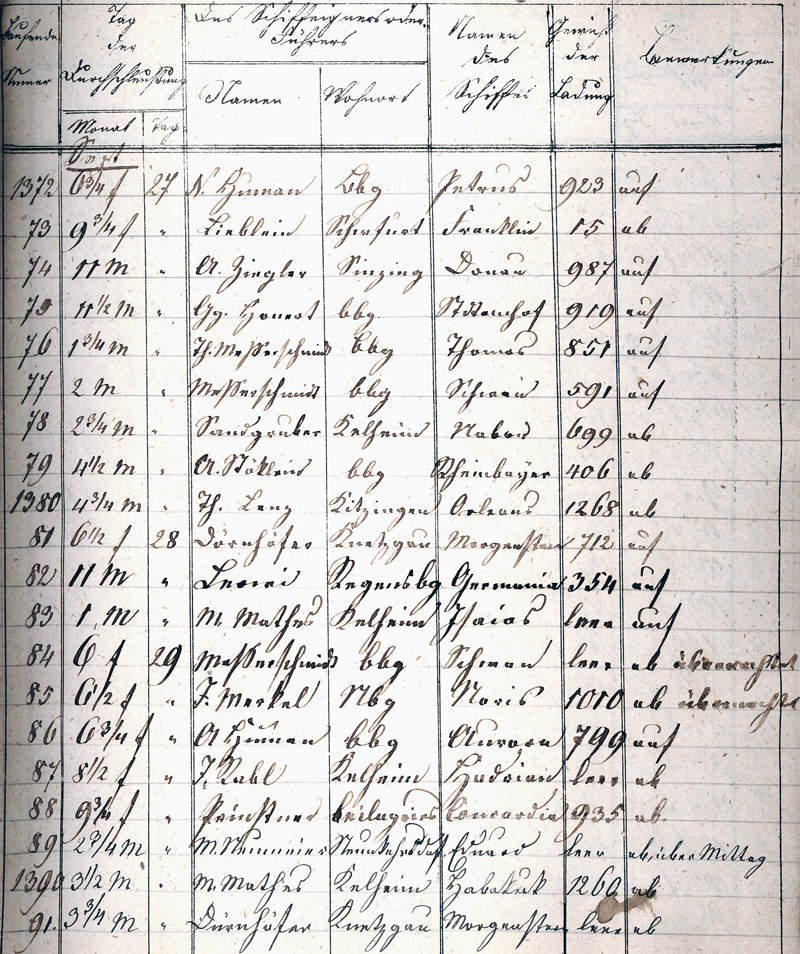 Laufende Numer | Tag der Durchschleußung | Des Schiffeigners oder Führers | Namen des Schiffes | Gewicht der Ladung | Bemerkungen
Monat | Tag | Namen | Wohnort
Sept
1372 6¾ f 27 N. Human Bbg Petrus 923 auf
73 9¾ f " Lieblein Schwfurt Franklin 15 ab
74 11 M " A. Ziegler Sinzing Donau 987 auf
75 11½ M " Gg. bbg. 919 auf
76 1¾ M " Th. Messerschmidt bbg Thomas 851 auf
77 2 M " Messerschmidt bbg Schwan 591 auf
78 2¾ M " Sandgruber Kelheim 699 ab
79 4½ M " A. Stöklein bbg Rheinbayer 406 ab
1380 4¾ M " Th. Lenz Kitzingen Orleans 1268 ab
81 6½ f 28 Dörnhöfer Knetzgau Morgenstern 712 auf
82 11 M " Regensbg Germania 354 auf
83 1 M " M. Mathes Kelheim Isaias leer auf
84 6 f 29 Messerschmidt bbg Schwan leer ab übernachtet
85 6½ f " J. Merkel Nbg Noris 1010 ab übernachtet
86 6¾ f " A Human bbg Aurora 799 auf
87 8½ f " J. Rabl Kelheim Hadrian leer ab
88 9¾ f " beilngries Concordia 935 ab
89 2¾ M " M. Neumeier Eduard leer ab, über Mittag
1390 3½ M " M. Mathes Kelheim Habakuk 1260 ab
91. 3¾ M " Dürnhöfer Knetzgau Morgenstern leer ab